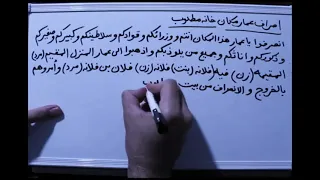 اصراف عمار مكان خانه مطلوب
انصرفوا ياعمار هذا المكان انتم و وزرائكم و قوادكم و سلاطينكم و كبيركم صغيركم
و ذكوركم و اناثكم و جميع من يلوذ بكم و اذهبوا الى عمار المنزل المقيم (مرد)
المقيمة (زن) فيه (فلانة (بنت) فلانة (زن) فلان بن فلانة (مرد) و امروهم
بالخروج و الانصراف من بيت